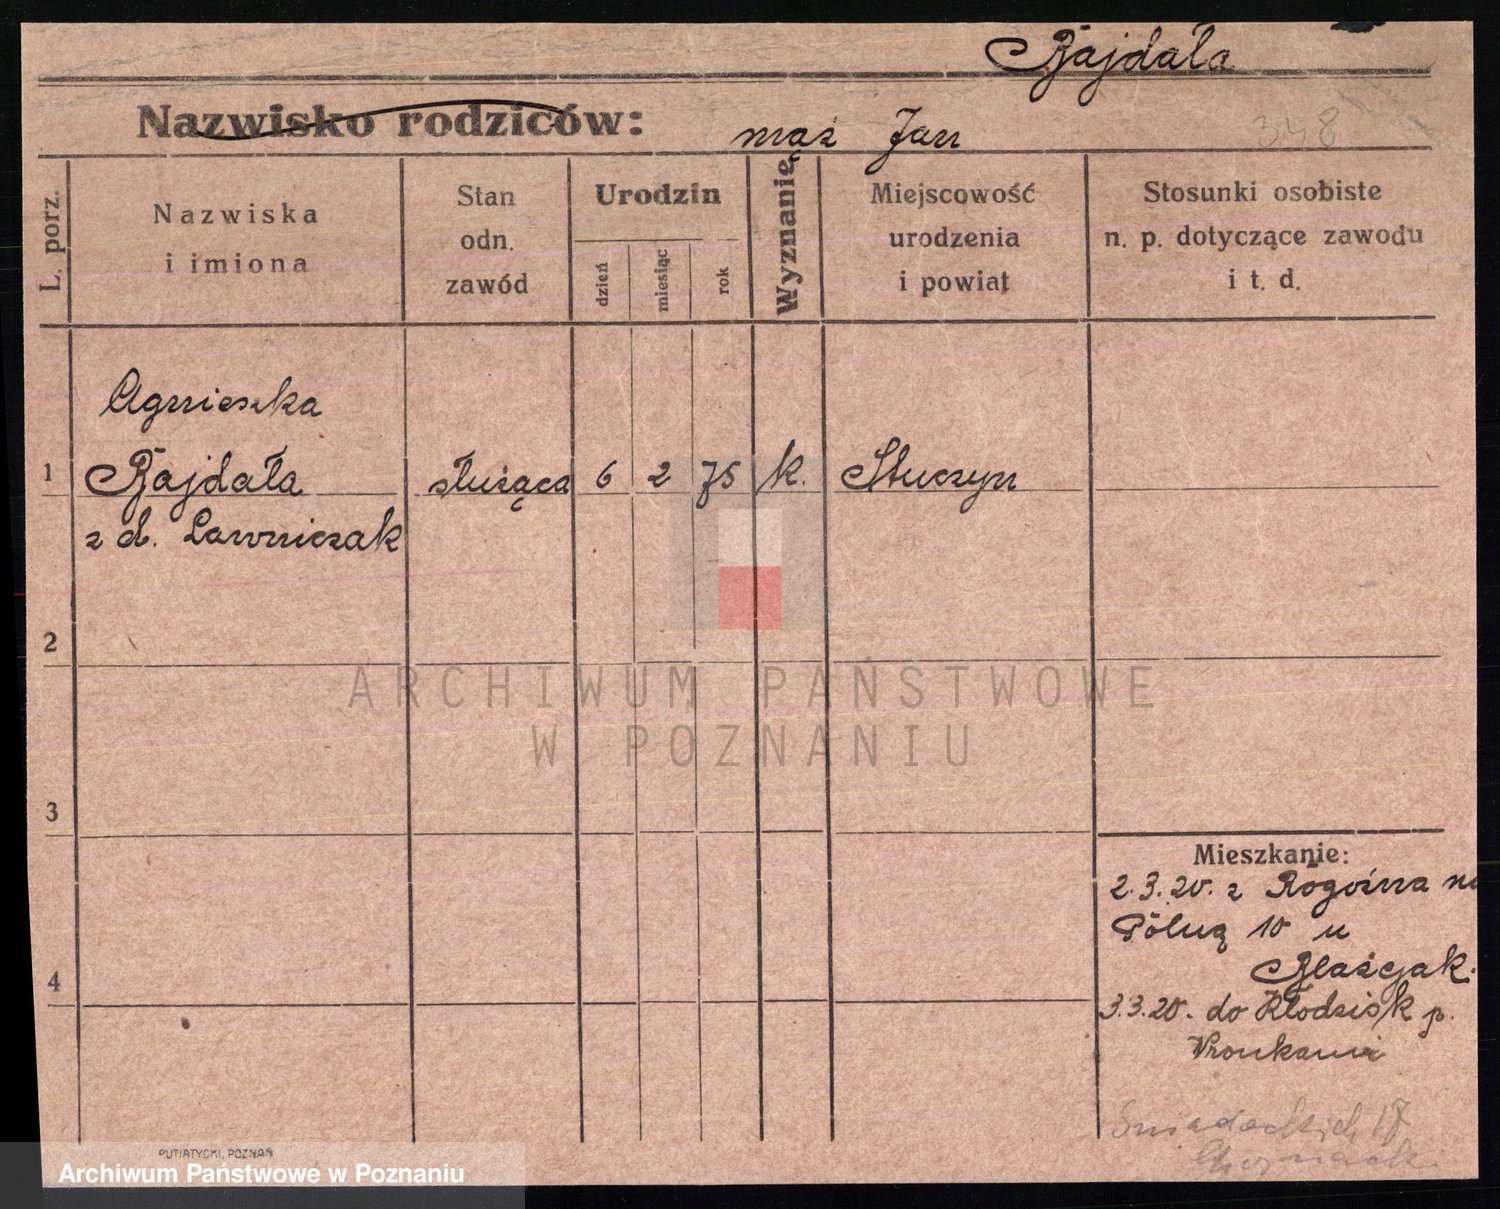 Bajdała
Nazwisko rodziców: mąż Jan
348
L. porz.
Nazwiska
i imiona
Stan
odn.
zawód
Urodzin
dzień
miesiąc
rok
Wyznanie
Miejscowość
urodzenia
i powiat
Stosunki osobiste
n. p. dotyczące zawodu
i t. d.
Agnieszka
1 Bajdała służąca 6 2 75 k. Słuczyn
z d. Ławniczak
2
3
4
Mieszkanie:
2.3.20. z Rogoźna na
Pólną 10 u
Błażejak.
3.3.20. do Kłodzisk p.
Wronkami
Śniadeckich 17
PUTIATYCKI, POZNAŃ
ARCHIWUM PAŃSTWOWE
W POZNANIU
Archiwum Państwowe w Poznaniu